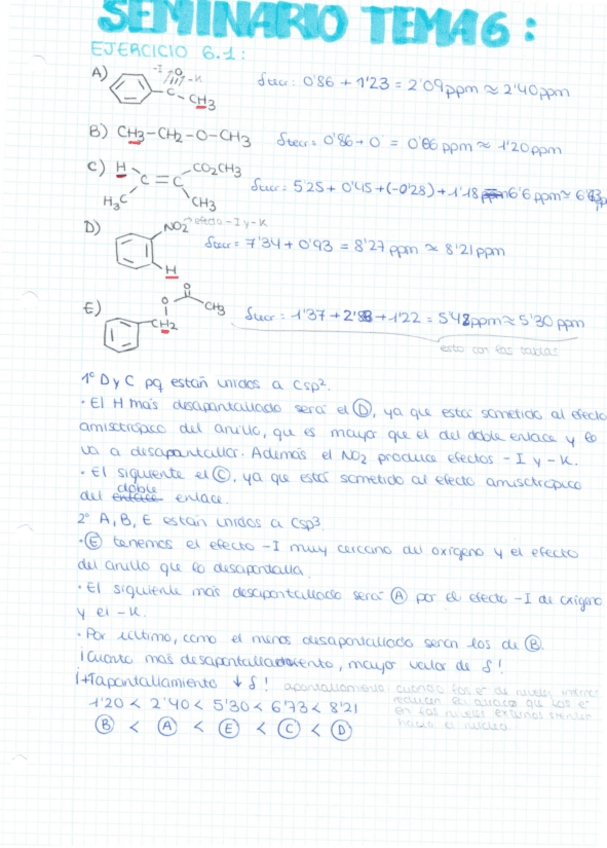 SEMINARIO TEMA 6:
EJERCICIO 6.1:
A) -I O -K
C-CH3
δteor: 0'86 + 1'23 = 2'09 ppm ≈ 2'40 ppm
B) CH3-CH2-O-CH3 δteor = 0'86 + 0 = 0'86 ppm ≈ 1'20 ppm
C) H CO2CH3
C=C
H3C CH3
δteor = 5'25 + 0'45 + (-0'28) + 1'18 6'6 ppm ≈
D) NO2 efecto -I y -K
H
δteor = 7'34 + 0'93 = 8'27 ppm ≈ 8'21 ppm
E) O O CH3
CH2
δteor = 1'37 + 1'22 = ppm ≈ 5'30 ppm
esto con las tablas
1º D y C pq están unidos a Csp2.
· El H más desapantallado será el D, ya que está sometido al efecto
anisotrópico del anillo, que es mayor que el del doble enlace y lo
va a desapantallar. Además el NO2 produce efectos -I y -K.
· El siguiente el C, ya que está sometido al efecto anisotrópico
del doble enlace.
2º A, B, E están unidos a Csp3
· E tenemos el efecto -I muy cercano del oxígeno y el efecto
del anillo que lo desapantalla.
· El siguiente más desapantallado será A por el efecto -I de oxígeno
y el -K.
· Por último, como el menos desapantallado serán los de B.
¡Cuanto más desapantallamiento, mayor valor de δ!
¡+Tapantallamiento ↓ δ! apantallamiento: cuando los e- de niveles internos
reducen la atracc. que los e-
en los niveles externos sienten
hacia el núcleo
1'20 < 2'40 < 5'30 < 6'73 < 8'21
B < A < E < C < D